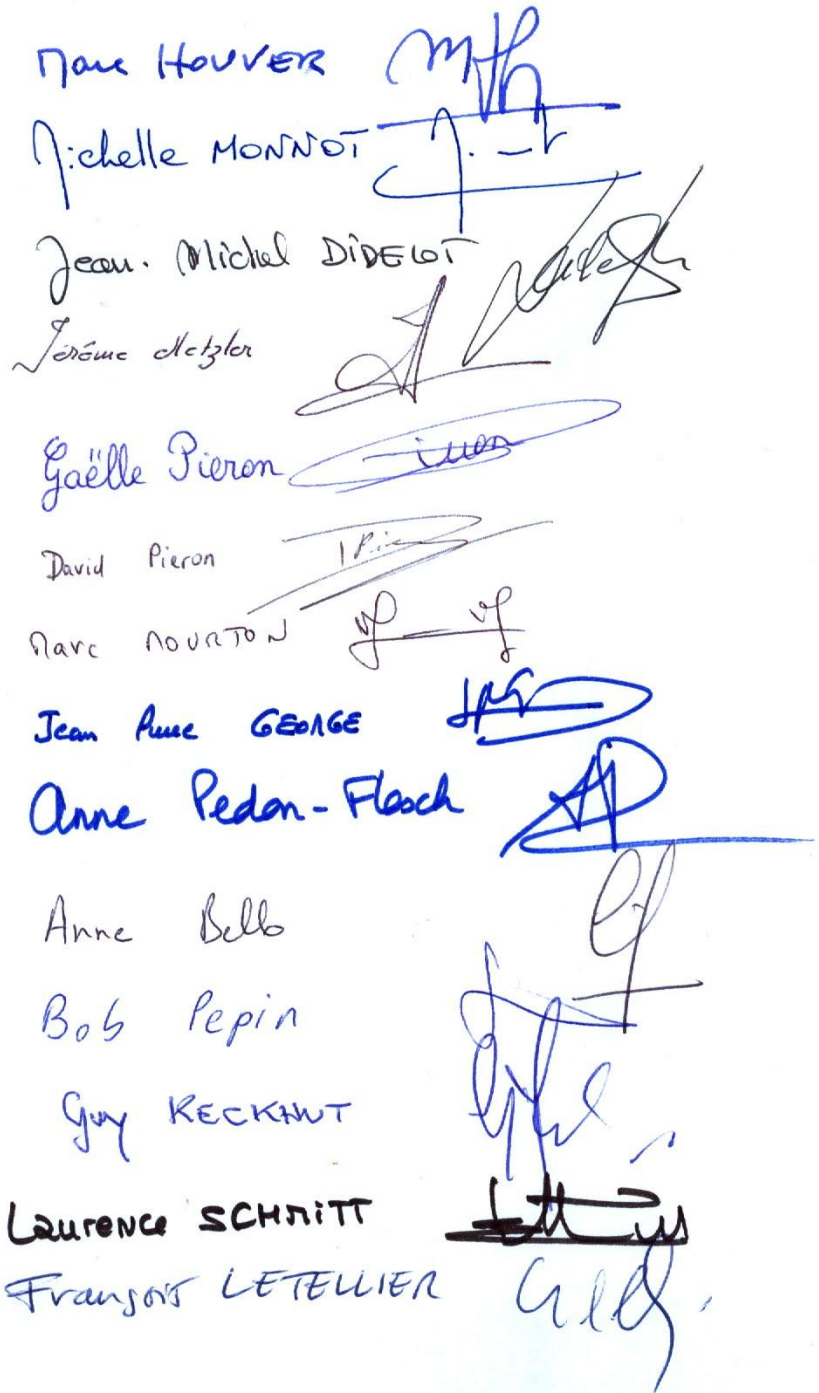 Marc HOUVER
Michelle MONNOT
Jean-Michel DIDELOT
Jérôme Metzler
Gaëlle Pieron
David Pieron
Marc MOURTON
Jean GEORGE
Anne Pedon-Flesch
Anne Bello
Bob Pepin
Guy KECKHUT
Laurence SCHMITT
François LETELLIER